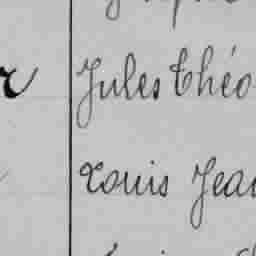 Jules Théo
Louis Jea